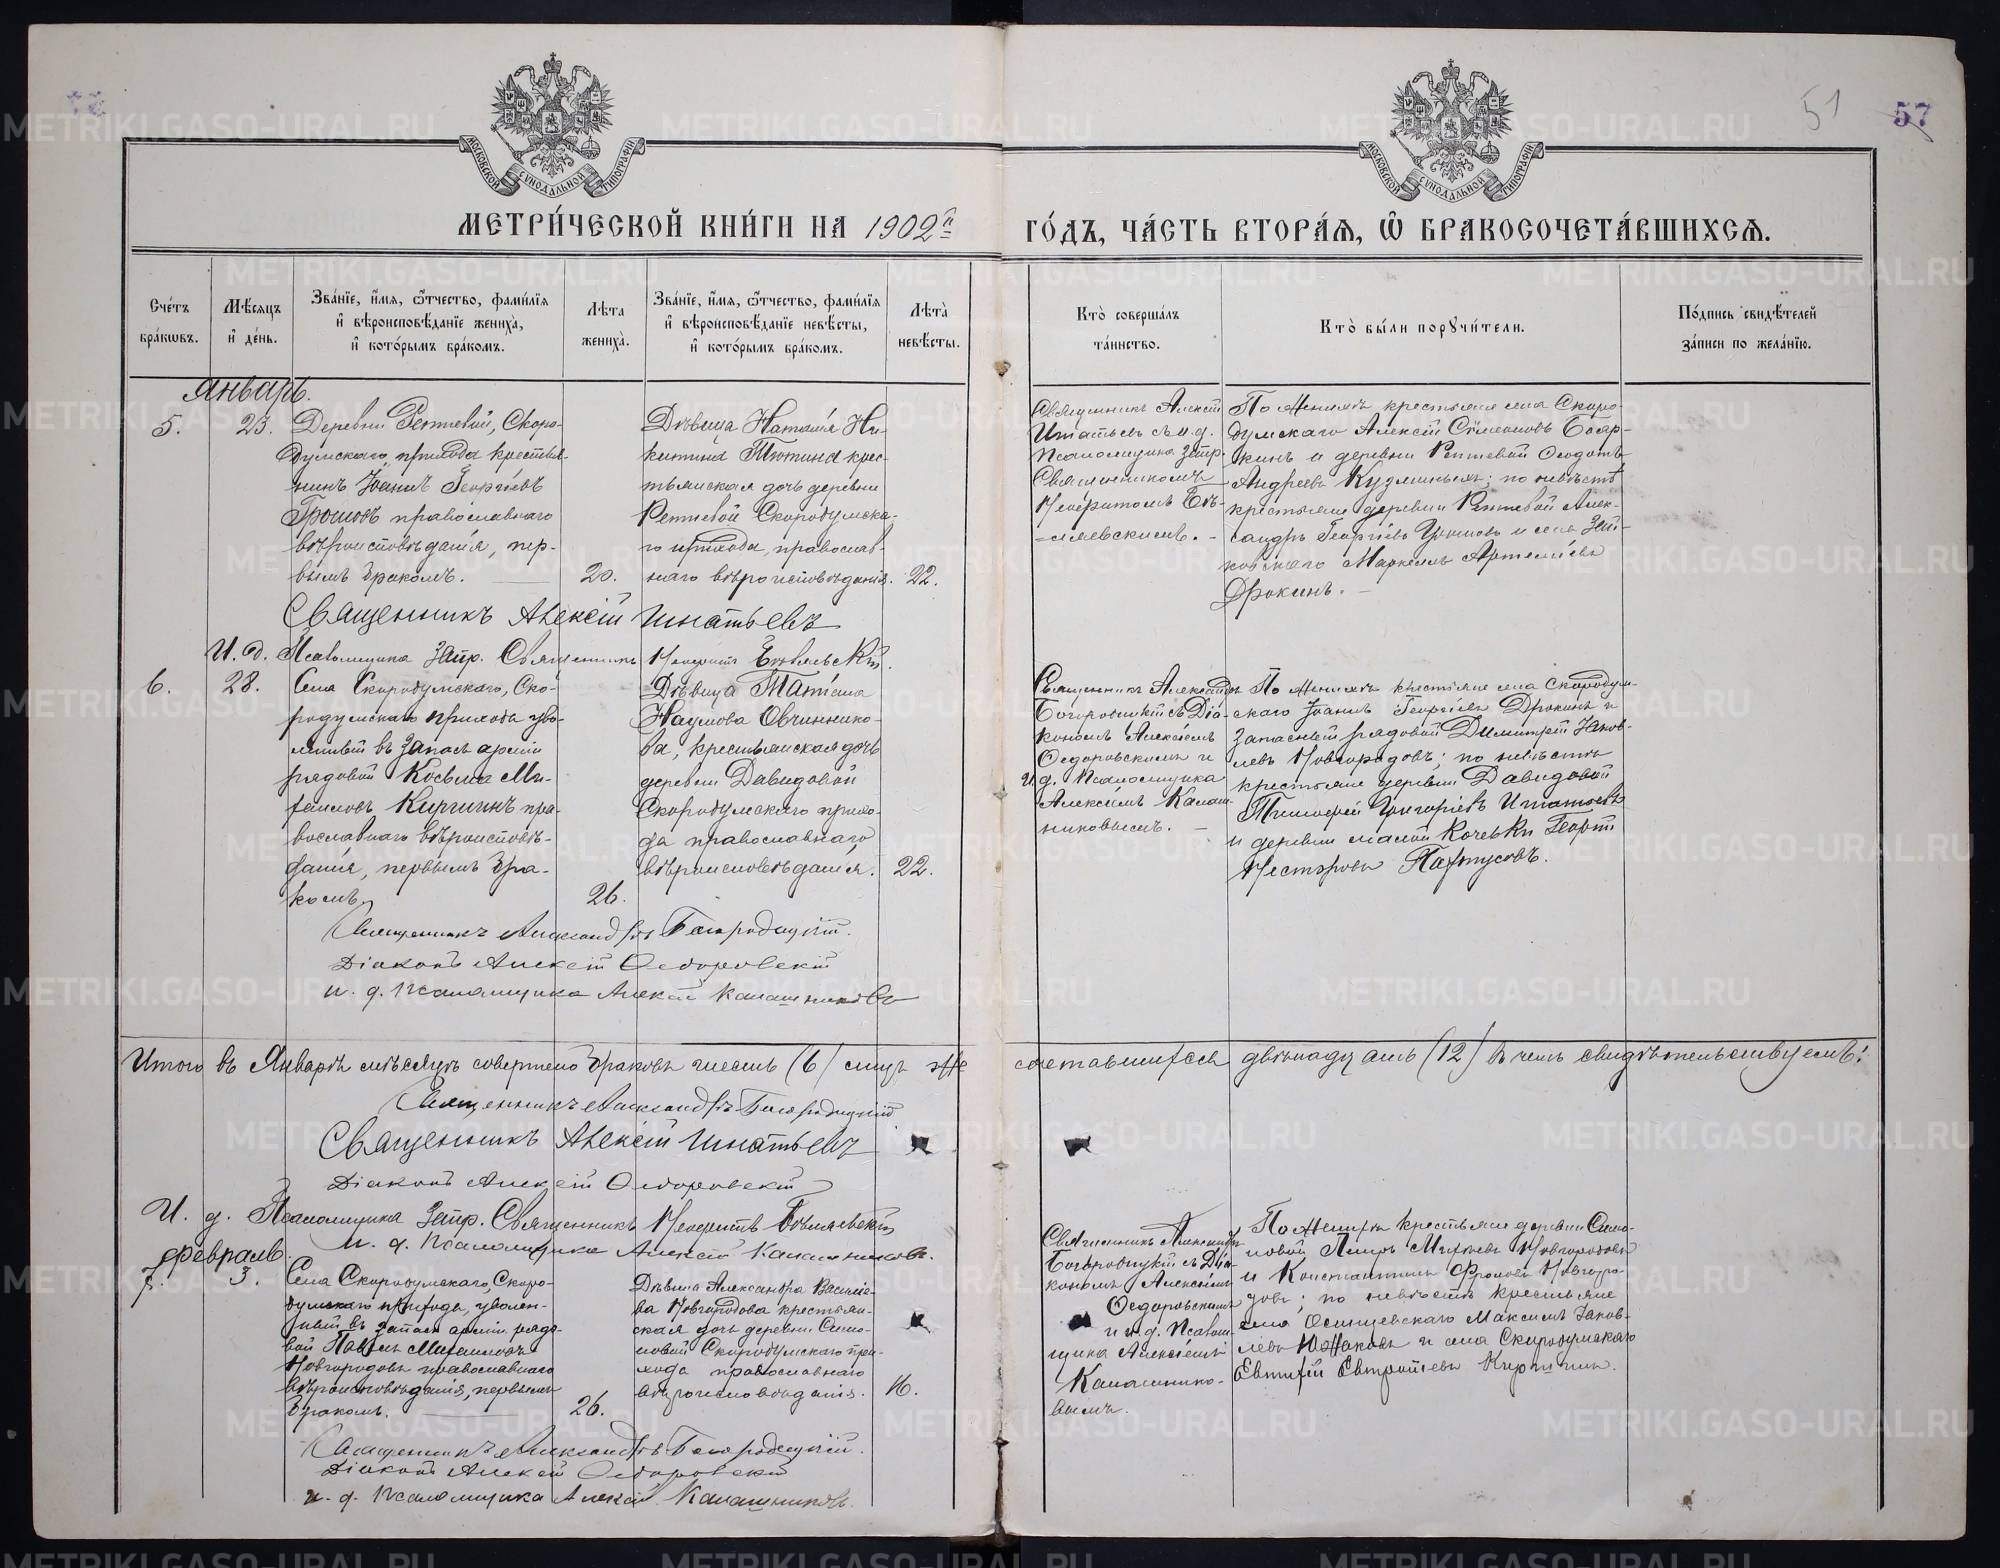 57
51
МОСКОВСКОЙ СѴНОДАЛЬНОЙ ТИПОГРАФІИ
МОСКОВСКОЙ СѴНОДАЛЬНОЙ ТИПОГРАФІИ
МЕТРИ́ЧЕСКОЙ КНИ́ГИ НА 1902й
ГО́ДЪ, ЧА́СТЬ ВТОРА́Я, Ѽ БРАКОСОЧЕТА́ВШИХСЯ.
Сче́тъ бра́кѡвъ.
Мѣ́сяцъ и҆ де́нь.
Зва́нїе, и҆́мя, ѻ҆́тчество, фами́лїя и҆ вѣроисповѣ́данїе жениха̀, и҆ кото́рымъ бра́комъ.
Лѣ́та жениха̀.
Зва́нїе, и҆́мя, ѻ҆́тчество, фами́лїя и҆ вѣроисповѣ́данїе невѣ́сты, и҆ кото́рымъ бра́комъ.
Лѣ́та невѣ́сты.
Кто̀ соверша́лъ та́инство.
Кто̀ бы́ли порꙋчи́тели.
По́дпись свидѣ́телей за́писи по жела́нїю.
Январь.
5.
23.
Деревни Реппевой, Скоро-
думскаго прихода крестья-
нинъ Іоаннъ Георгіевъ
православнаго
вѣроисповѣданія, пер-
вымъ бракомъ.
20.
Дѣвица Наталія Ни-
китина Тютина крес-
тьянская дочь деревни
Реппевой Скородумска-
го прихода, православ-
наго вѣроисповѣданія.
22.
Священникъ Алексій
Игнатьевъ съ и.д.
Псаломщика запр.
Священникомъ
По женихѣ крестьяне села Скоро-
думскаго Алексій Симеоновъ
и деревни Реппевой Ѳеодотъ
Андреевъ Кузминыхъ; по невѣстѣ
крестьяне деревни Реппевой Алек-
сандръ Георгіевъ и села Зай-
ковскаго Маркеллъ Артеміевъ
Дрокинъ.
Священникъ Алексій Игнатьевъ
И. д. Псаломщика запр. Священникъ
6.
28.
Села Скородумскаго, Ско-
родумскаго прихода уво-
ленный въ запасъ арміи
рядовой Косьма Ми-
хаиловъ Киргинъ пра-
вославнаго вѣроисповѣ-
данія, первымъ бра-
комъ.
26.
Дѣвица Татіана
Наумова Овчиннико-
ва, крестьянская дочь
деревни Давидовой
Скородумскаго прихо-
да православнаго
вѣроисповѣданія.
22.
Священникъ Александръ
Богородицкій съ Діа-
кономъ Алексіемъ
Ѳедоровскимъ и
и. д. Псаломщика
Алексіемъ Калаш-
никовымъ.
По женихѣ крестьяне села Скородум-
скаго Іоаннъ Георгіевъ Дрокинъ и
запасный рядовой Димитрій Яков-
левъ Новгородовъ; по невѣстѣ
крестьяне деревни Давидовой
Тимоѳей Григоріевъ Игнатьевъ
и деревни малой Кочевки Георгій
Несторовъ Пафнусовъ.
Священникъ Александръ Богородицкій.
Діаконъ Алексій Ѳедоровскій
и. д. Псаломщика Алексій Калашниковъ
Итого въ Январѣ мѣсяцѣ совершено браковъ шесть (6) лицъ же
сочетавшихся двѣнадцать (12) въ чемъ свидѣтельствуемъ:
Священникъ Александръ Богородицкій
Священникъ Алексій Игнатьевъ
Діаконъ Алексій Ѳедоровскій
И. д. Псаломщика запр. Священникъ
И. д. Псаломщика Алексій Калашниковъ.
Февраль.
7.
3.
Села Скородумскаго, Скоро-
думскаго прихода, уволен-
ный въ запасъ арміи рядо-
вой Павелъ Михаиловъ
Новгородовъ православнаго
вѣроисповѣданія, первымъ
бракомъ.
26.
Дѣвица Александра Василіе-
ва Новгородова крестьян-
ская дочь деревни Симо-
новой Скородумскаго при-
хода православнаго
вѣроисповѣданія.
16.
Священникъ Александръ
Богородицкій съ Діа-
кономъ Алексіемъ
Ѳедоровскимъ
и и. д. Псалом-
щика Алексіемъ
Калашнико-
вымъ.
По женихѣ крестьяне деревни Симо-
новой Новгородовъ
и Константинъ Фроловъ Новгоро-
довъ; по невѣстѣ крестьяне
села Осинцевскаго Максимъ Яков-
левъ Южаковъ и села Скородумскаго
Евтихій Киргинъ.
Священникъ Александръ Богородицкій.
Діаконъ Алексій Ѳедоровскій
и. д. Псаломщика Алексій Калашниковъ.
METRIKI.GASO-URAL.RU